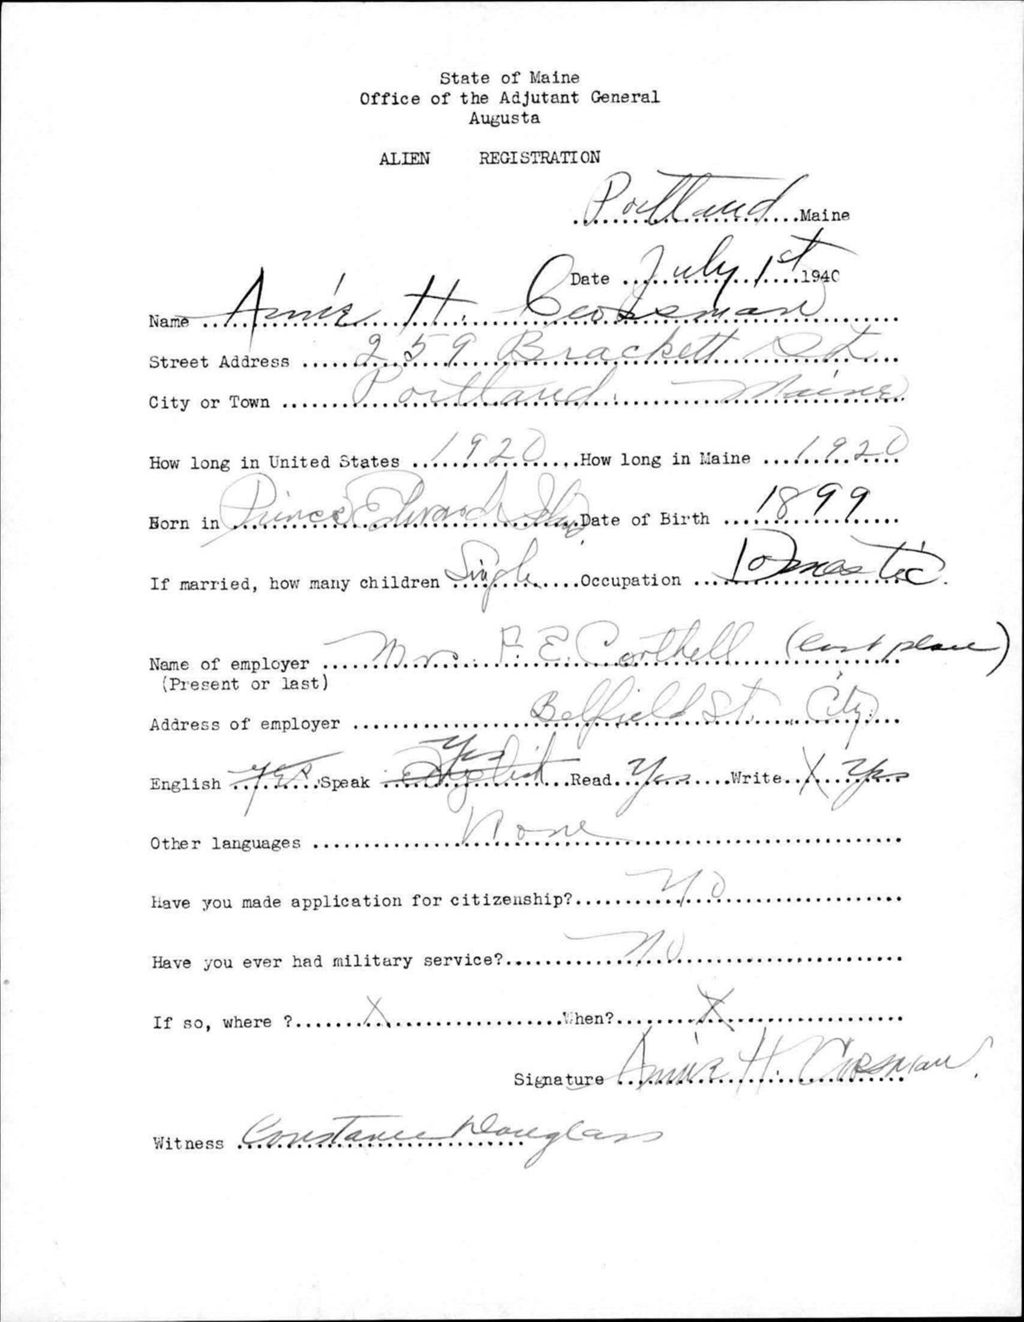 State of Maine
Office of the Adjutant General
Augusta
ALIEN REGISTRATION
Portland Maine
Date July 1st 1940
Name Annie H.
Street Address 259 Brackett St.
City or Town Portland. Maine
How long in United States 1920 How long in Maine 1920
Born in Prince Edward Date of Birth 1899
If married, how many children Single Occupation Domestic.
Name of employer Mrs. F. E. Corthell (last place)
(Present or last)
Address of employer Belfield St. City.
Yes
English Yes Speak English Read Yes Write X Yes
Other languages None
Have you made application for citizenship? No
Have you ever had military service? No
If so, where ? X When? X
Signature Annie H.
Witness Constance Douglass